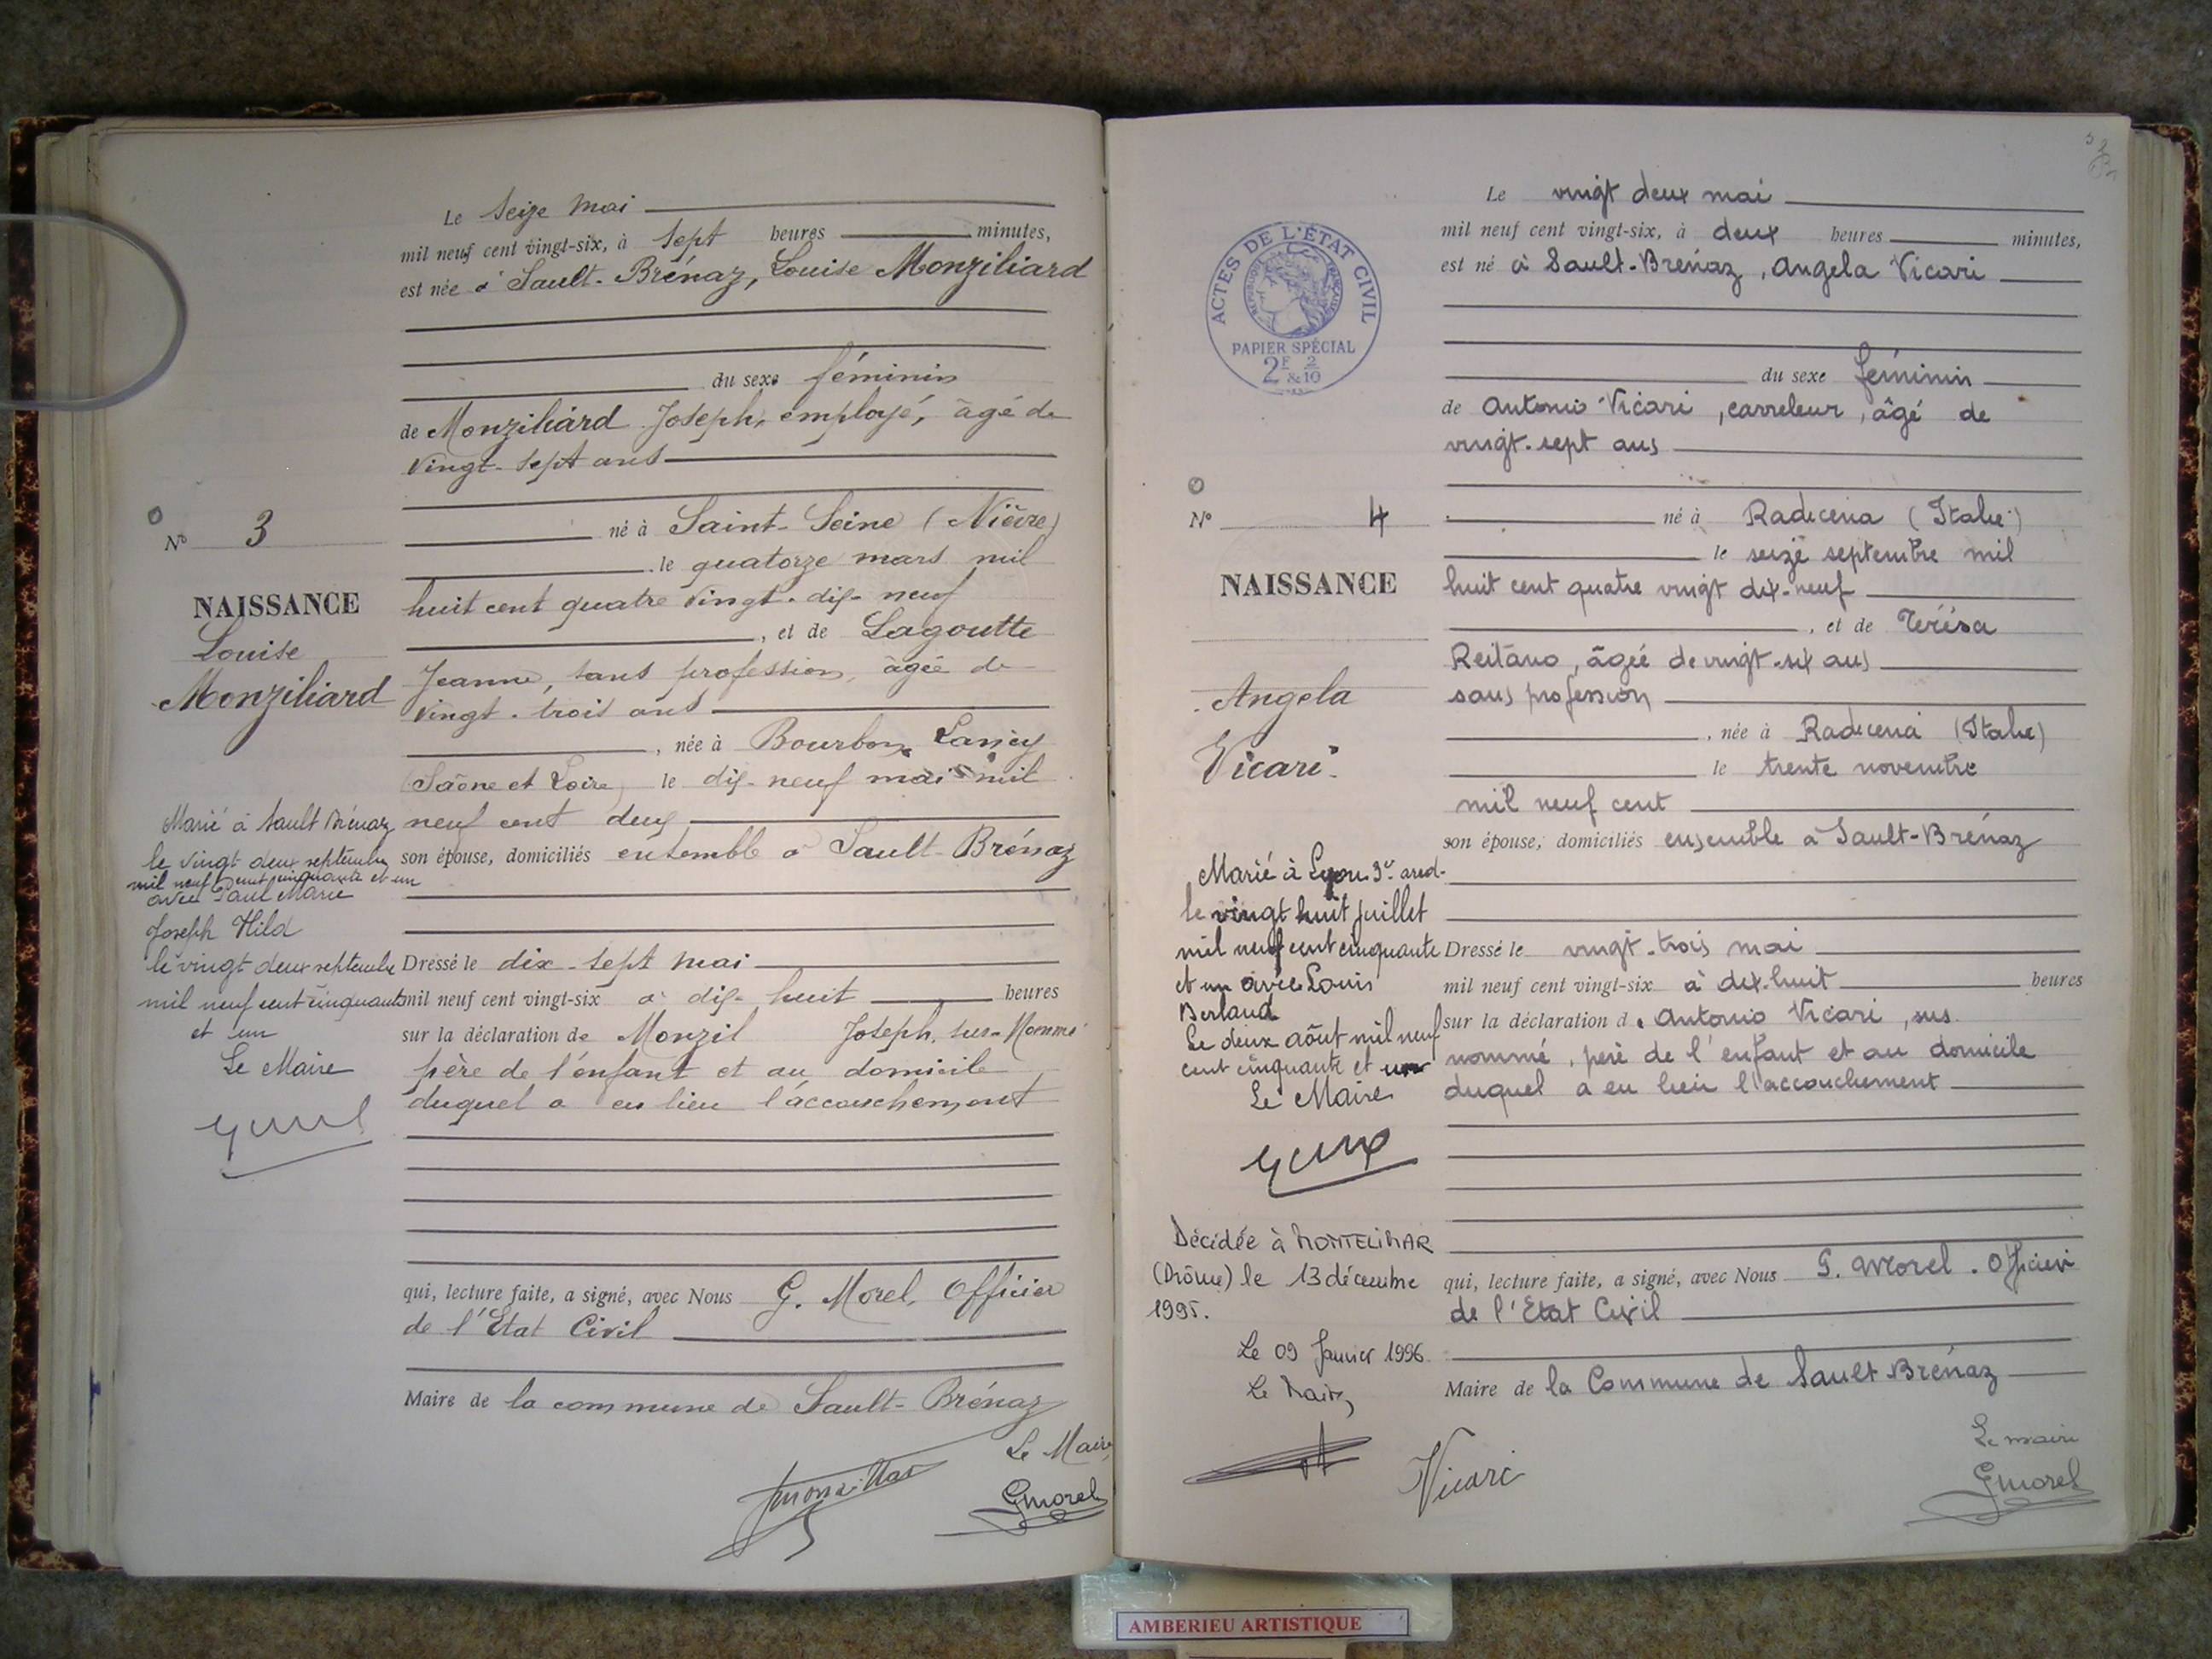 Le seize mai
mil neuf cent vingt-six, à sept heures minutes,
est née à Sault-Brénaz, Louise Monziliard
du sexe féminin
de Monziliard Joseph, employé, âgé de
vingt-sept ans
né à Saint-Seine (Nièvre)
le quatorze mars mil
huit cent quatre vingt-dix-neuf
, et de Lagoutte
Jeanne, sans profession, âgée de
vingt-trois ans
, née à Bourbon Lancy
(Saône et Loire) le dix-neuf mai mil
neuf cent deux
son épouse, domiciliés ensemble à Sault-Brénaz
Dressé le dix-sept mai
mil neuf cent vingt-six à dix-huit heures
sur la déclaration de Monzil Joseph, sus-nommé
père de l'enfant et au domicile
duquel a eu lieu l'accouchement
qui, lecture faite, a signé, avec Nous G. Morel, Officier
de l'Etat Civil
Maire de la commune de Sault-Brénaz
Le Maire,
GMorel
No 3
NAISSANCE
Louise
Monziliard
Marié à Sault Brénaz
le vingt deux septembre
mil neuf cent cinquante et un
avec Paul Marie
Joseph Hild
le vingt deux septembre
mil neuf cent cinquante
et un
Le Maire
Le vingt deux mai
mil neuf cent vingt-six, à deux heures minutes,
est né à Sault-Brénaz, Angela Vicari
du sexe féminin
de Antonio Vicari, carreleur, âgé de
vingt-sept ans
né à Radicena (Italie)
le seize septembre mil
huit cent quatre vingt dix-neuf
, et de Térésa
Reitano, âgée de vingt-six ans
sans profession
, née à Radicena (Italie)
le trente novembre
mil neuf cent
son épouse, domiciliés ensemble à Sault-Brénaz
Dressé le vingt-trois mai
mil neuf cent vingt-six à dix-huit heures
sur la déclaration de Antonio Vicari, sus
nommé, père de l'enfant et au domicile
duquel a eu lieu l'accouchement
qui, lecture faite, a signé, avec Nous G. Morel. Officier
de l'Etat Civil
Maire de la Commune de Sault-Brénaz
Vicari
Le maire
GMorel
ACTES DE L'ÉTAT CIVIL
RÉPUBLIQUE FRANÇAISE
PAPIER SPÉCIAL
2F & 2/10
No 4
NAISSANCE
Angela
Vicari
Marié à Lyon 3e arrd.
le vingt huit juillet
mil neuf cent cinquante
et un avec Louis
Berland
Le deux août mil neuf
cent cinquante et un
Le Maire
Décédée à MONTELIMAR
(Drôme) le 13 décembre
1995.
Le 09 Janvier 1996
Le Maire
AMBERIEU ARTISTIQUE